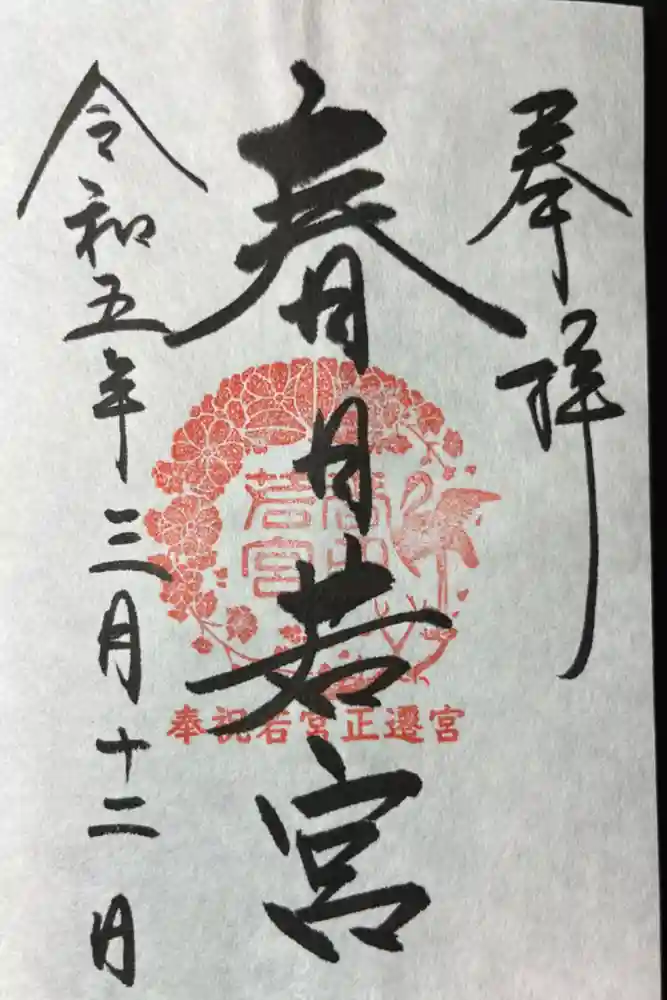 奉拝
春日若宮
令和五年三月十二日
春日
若宮
奉祝若宮正遷宮